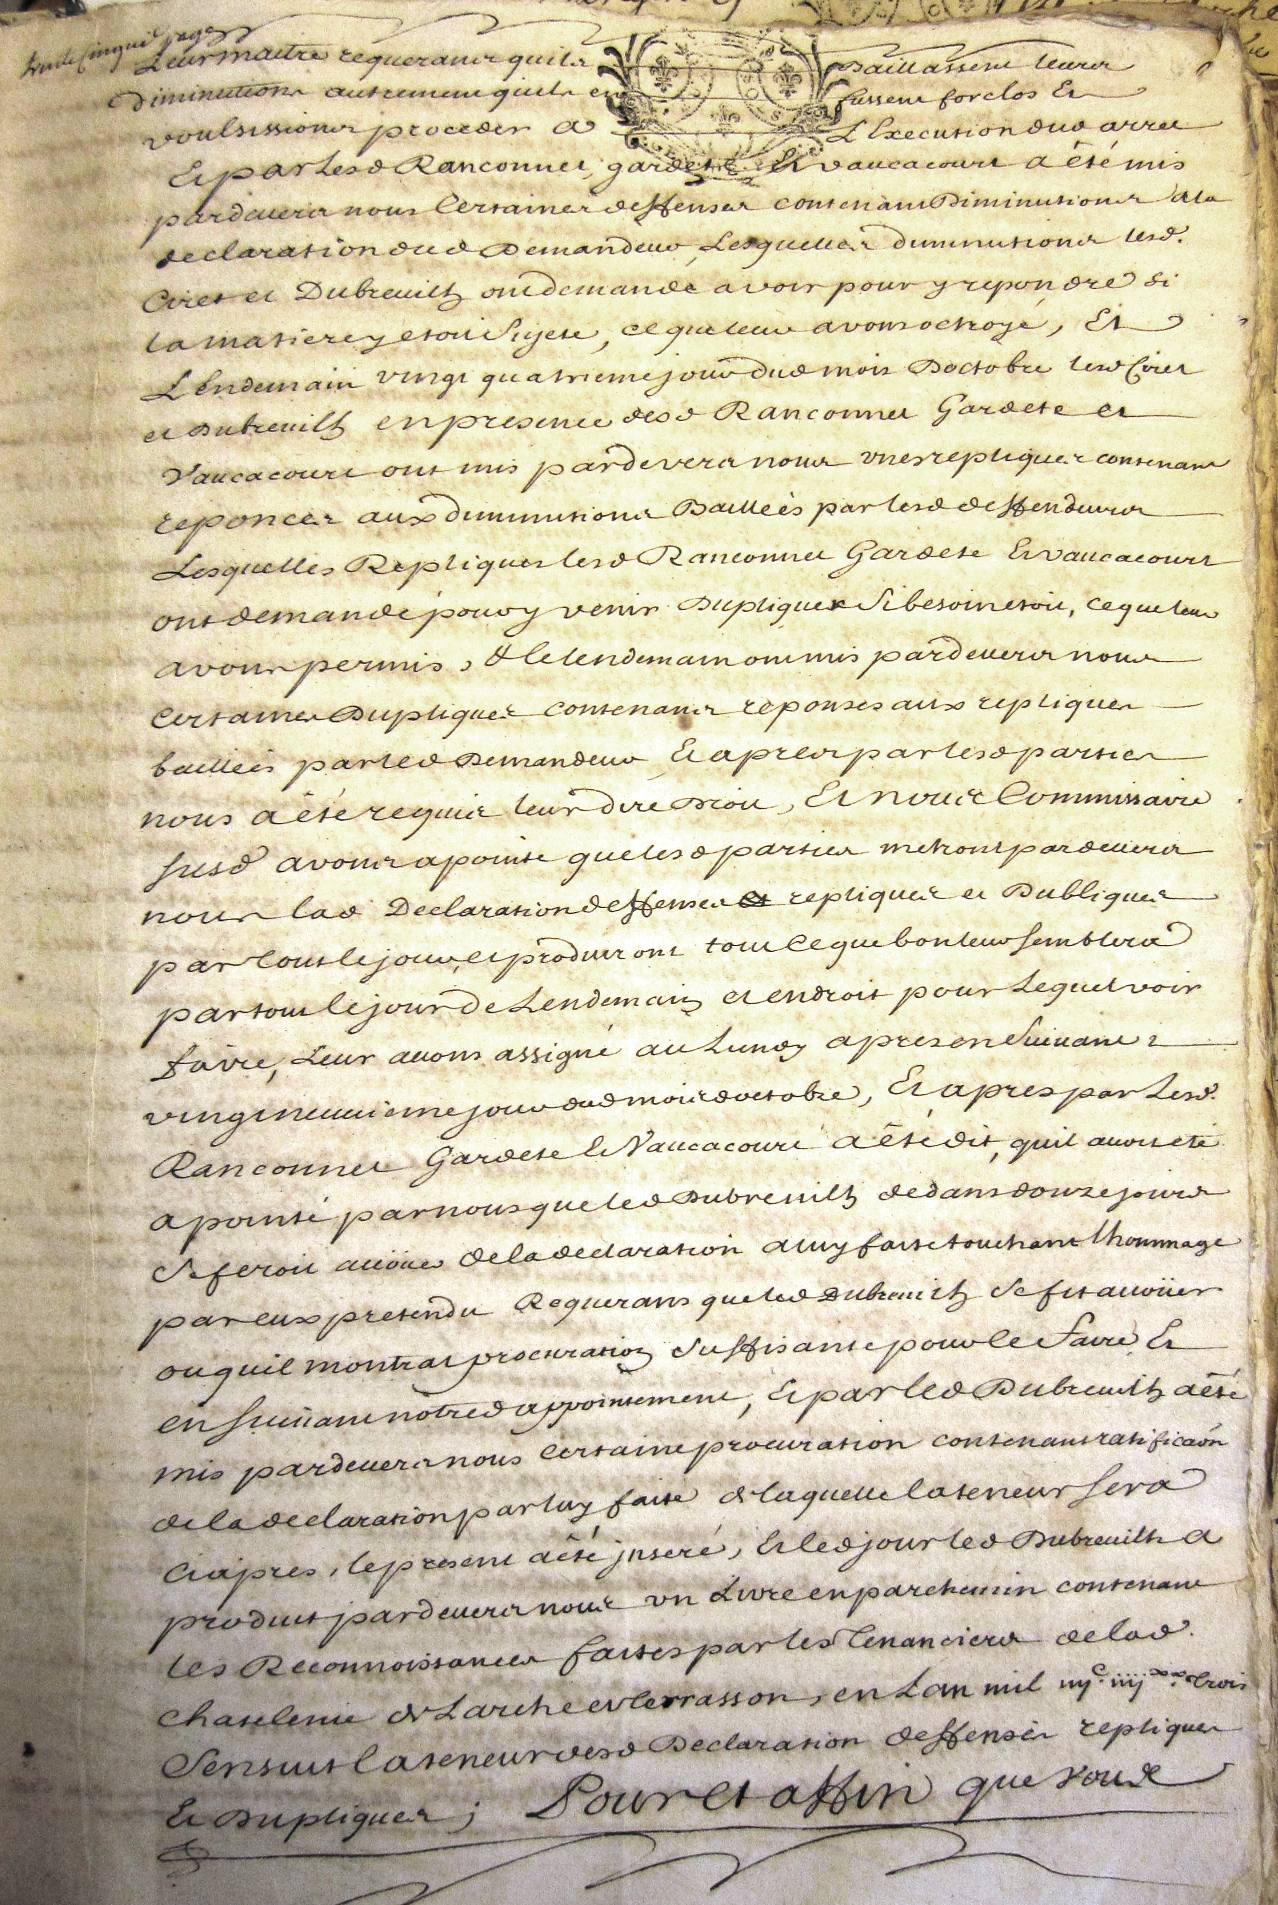 trente cinquie page
Leur maitre requerans quils Baillassent leurs
Diminutions autrement quils en fussent forclos Et
voulsissions proceder a L'Execution dud arret
Et par lesd Ranconnet, gardete Et vaucacourt a été mis
pardevers nous Certaines deffenses contenans Diminutions a la
declaration dud Demandeur, Lesquelles diminutions lesd.
Ciret et Dubreuilh ont demandé avoir pour y repondre si
la matiere y etoit Sujete, ce que leur avons octroyé, Et
L'Endemain vingt quatrieme jour dud mois Doctobre lesd Ciret
et Dubreuilh en presence desd Ranconnet Gardete et
Vaucacourt ont mis pardevers nous unes repliques contenans
reponces aux diminutions Baillées par lesd deffendeurs
Lesquelles Repliques lesd Ranconnet Gardete Et vaucacourt
ont demandé pour y venir Dupliquer Si besoin etoit, ce que leur
avons permis, & le lendemain ont mis pardevers nous
Certaines Dupliques contenans reponses aux repliques
baillées par led Demandeur Et apres par lesd parties
nous a été requis leur dire Droit, Et nous Commissaire
susd avons apointé que lesd parties metront pardevers
nous lad Declaration deffenses et repliques et Dubliques
par tout le jour, et produiront tout ce que bon leur semblera
par tout le jour de Lendemain et endroit pour Lequel voir
faire, Leur avons assigné au Lundy apres en Suivant
vingt neuvieme jour dud mois doctobre, Et apres par Lesd.
Ranconnet Gardete Et Vaucacourt a été dit, quil avoit été
apointé par nous que led Dubreuilh dedans douze jours
Se feroit avoüer de la declaration a luy faite touchant lhommage
par eux pretendu Requerans que led Dubreuilh se fit avoüer
ou quil montrat procuration suffisante pour le faire Et
en suivant notred appointement, Et par led Dubreuilh a été
mis pardevers nous Certaine procuration contenant ratificaon
de la declaration par luy faite & laquelle la teneur sera
Ci apres, le present a été inseré, Et led jour led Dubreuilh a
produit pardevers nous un Livre en parchemin contenant
les Reconnoissances faites par les Tenanciers de lad.
Chatelenie de Larche et Terrasson, en Lan mil iiijc. iiijxx. trois
Sensuit la teneur desd Declaration deffenses repliques
Et Dupliques; Pour et affin que vous